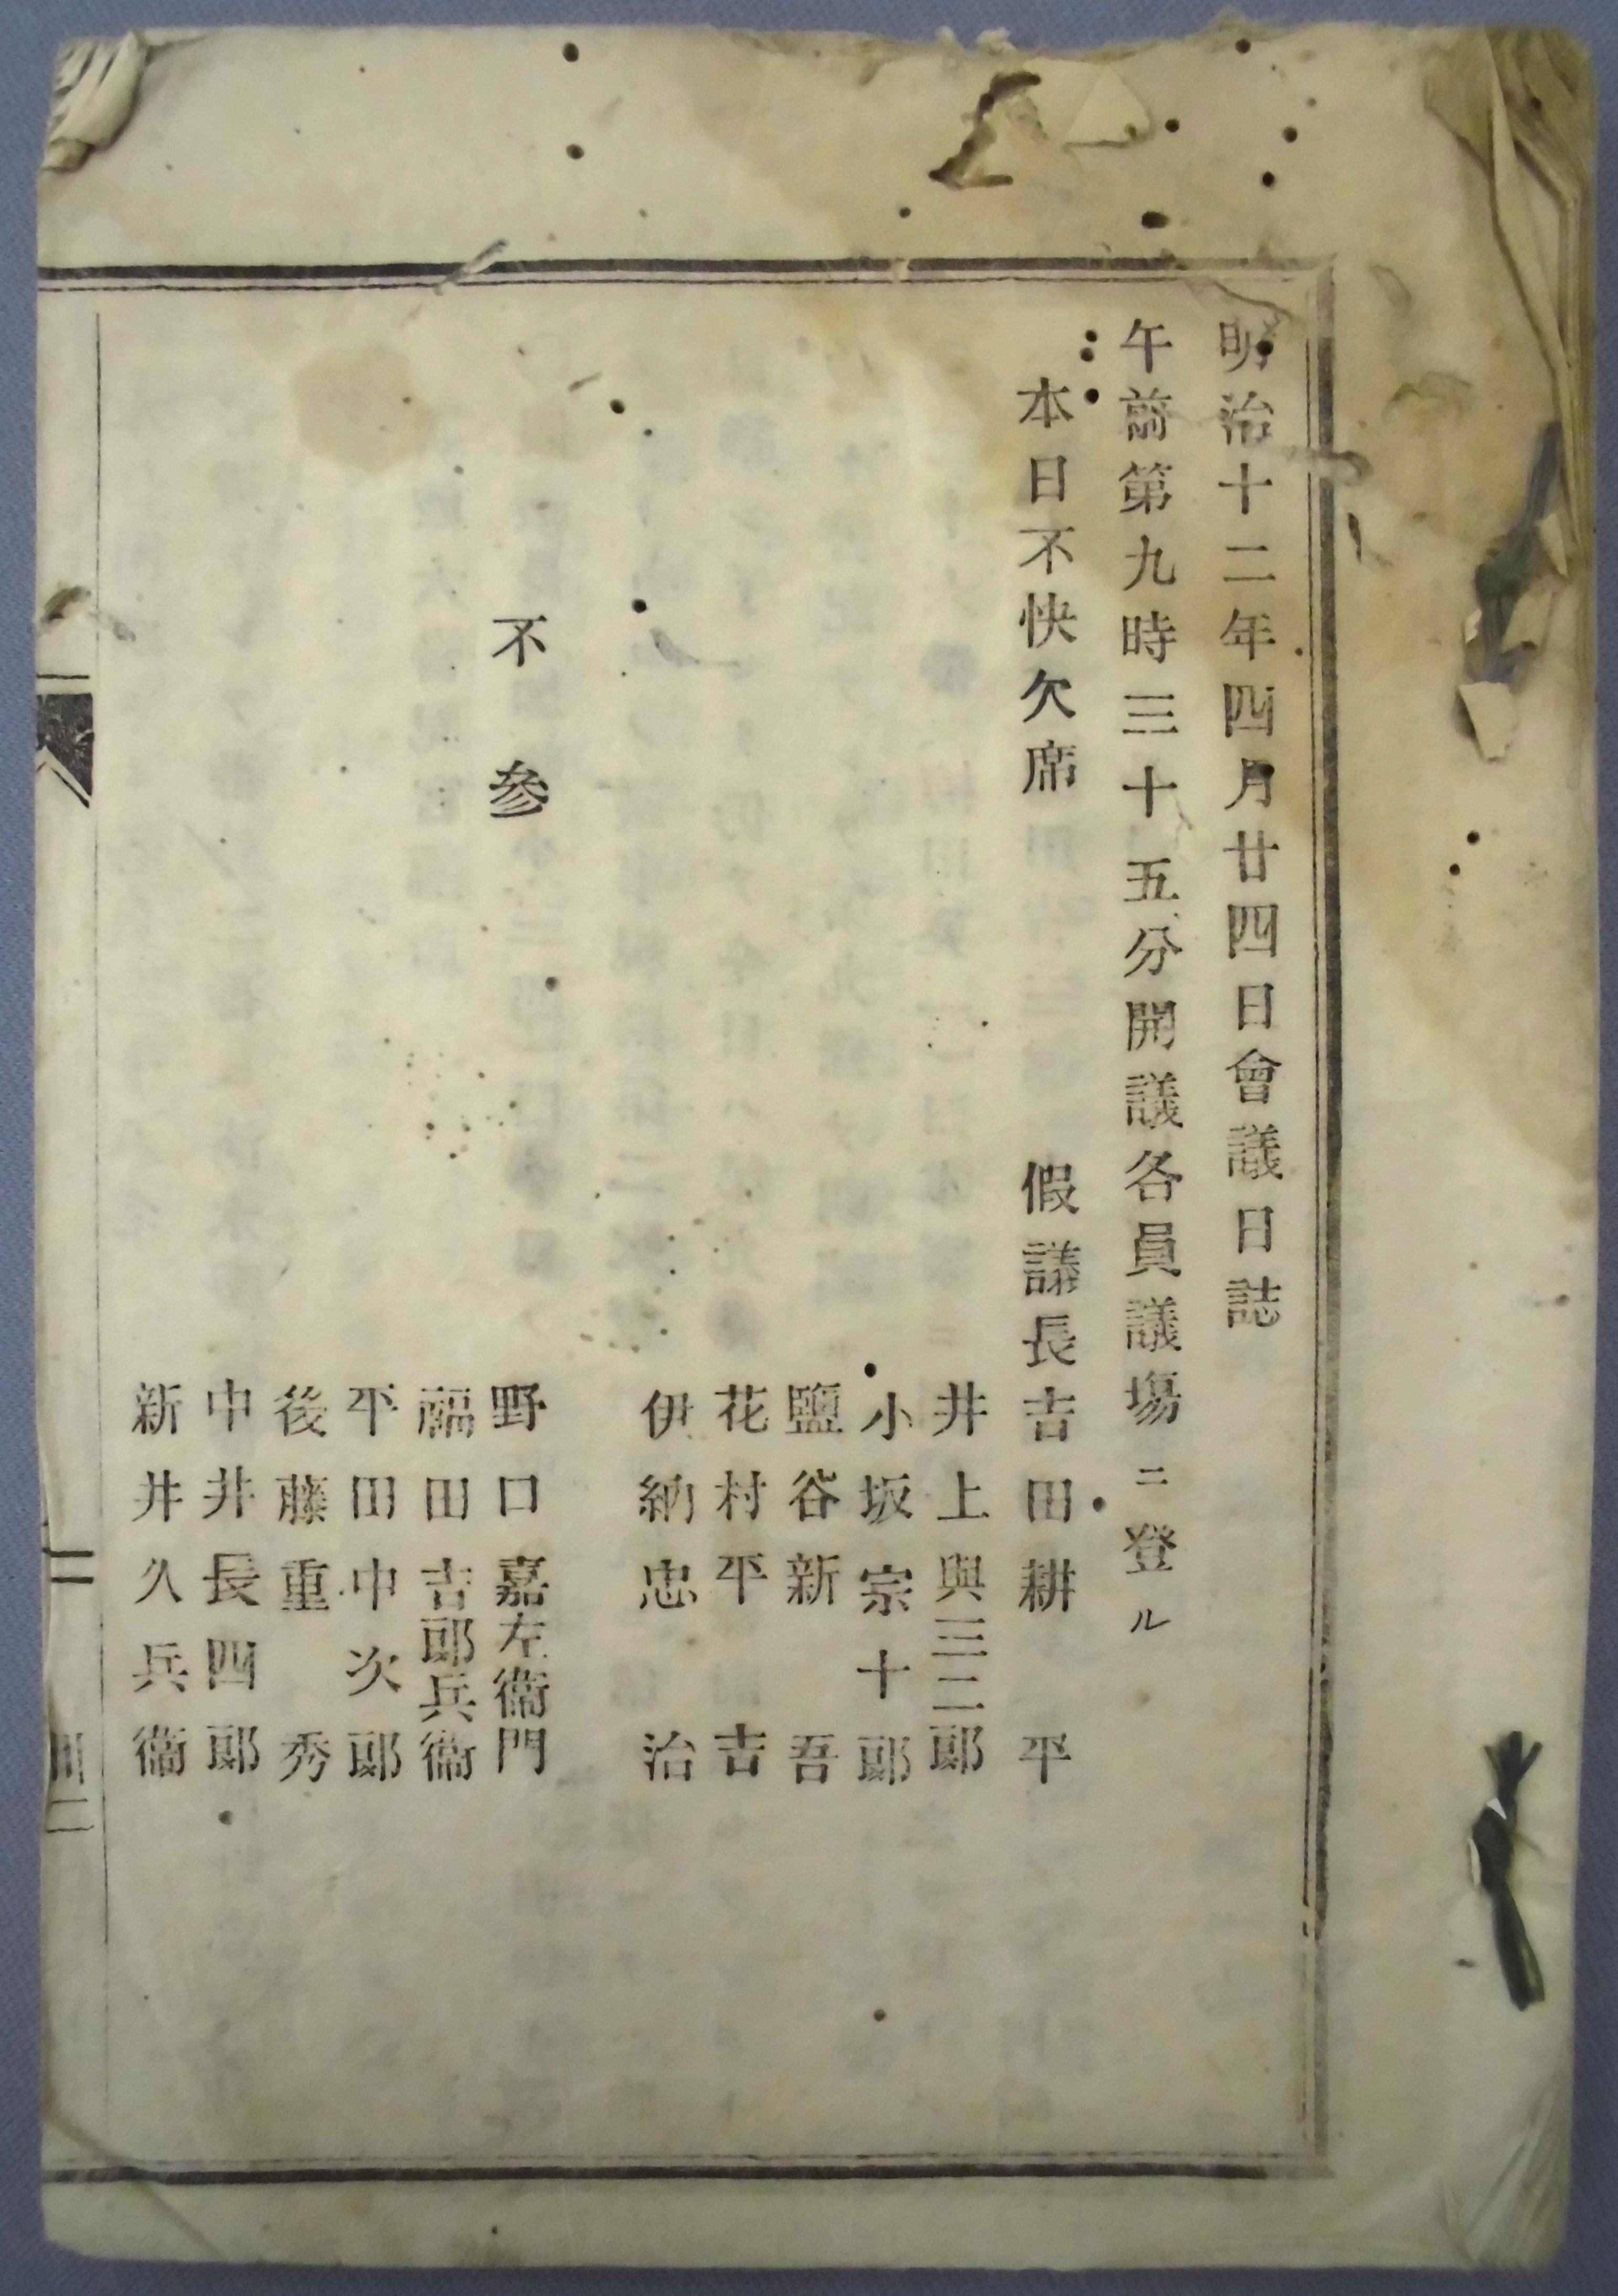 明治十二年四月廿四日會議日誌
午前第九時三十五分開議各員議塲ニ登ル
本日不快欠席　假議長吉田耕平
井上與三二郎
小坂宗十郎
鹽谷新吾
花村平吉
伊納忠治
不参　野口嘉左衞門
福田吉郎兵衞
平田中次郎
後藤重秀
中井長四郎
新井久兵衞